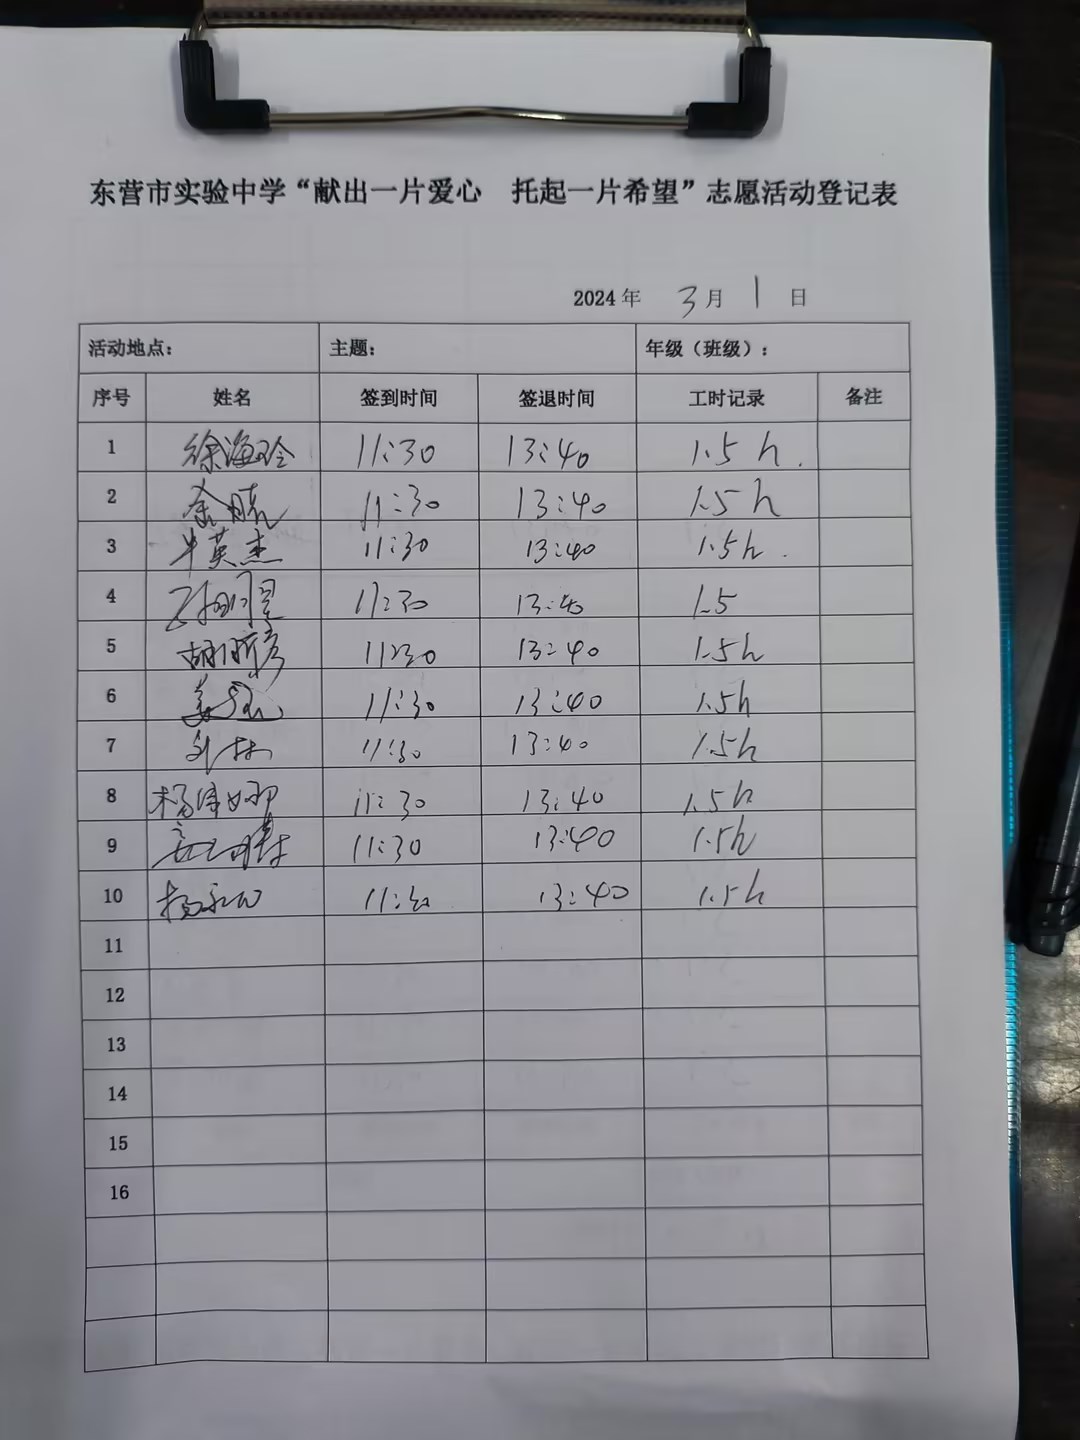 东营市实验中学“献出一片爱心 托起一片希望”志愿活动登记表
2024 年 3 月 1 日
活动地点： 主题： 年级（班级）：
序号 姓名 签到时间 签退时间 工时记录 备注
1 徐海玲 11:30 13:40 1.5 h.
2 11:30 13:40 1.5 h
3 牛英杰 11:30 13:40 1.5h.
4 11:30 13:40 1.5
5 胡昕彦 11:30 13:40 1.5h
6 11:30 13:40 1.5h
7 11:30 13:40 1.5h
8 杨 娜 11:30 13:40 1.5h
9 11:30 13:40 1.5h
10 杨 11:30 13:40 1.5h
11
12
13
14
15
16